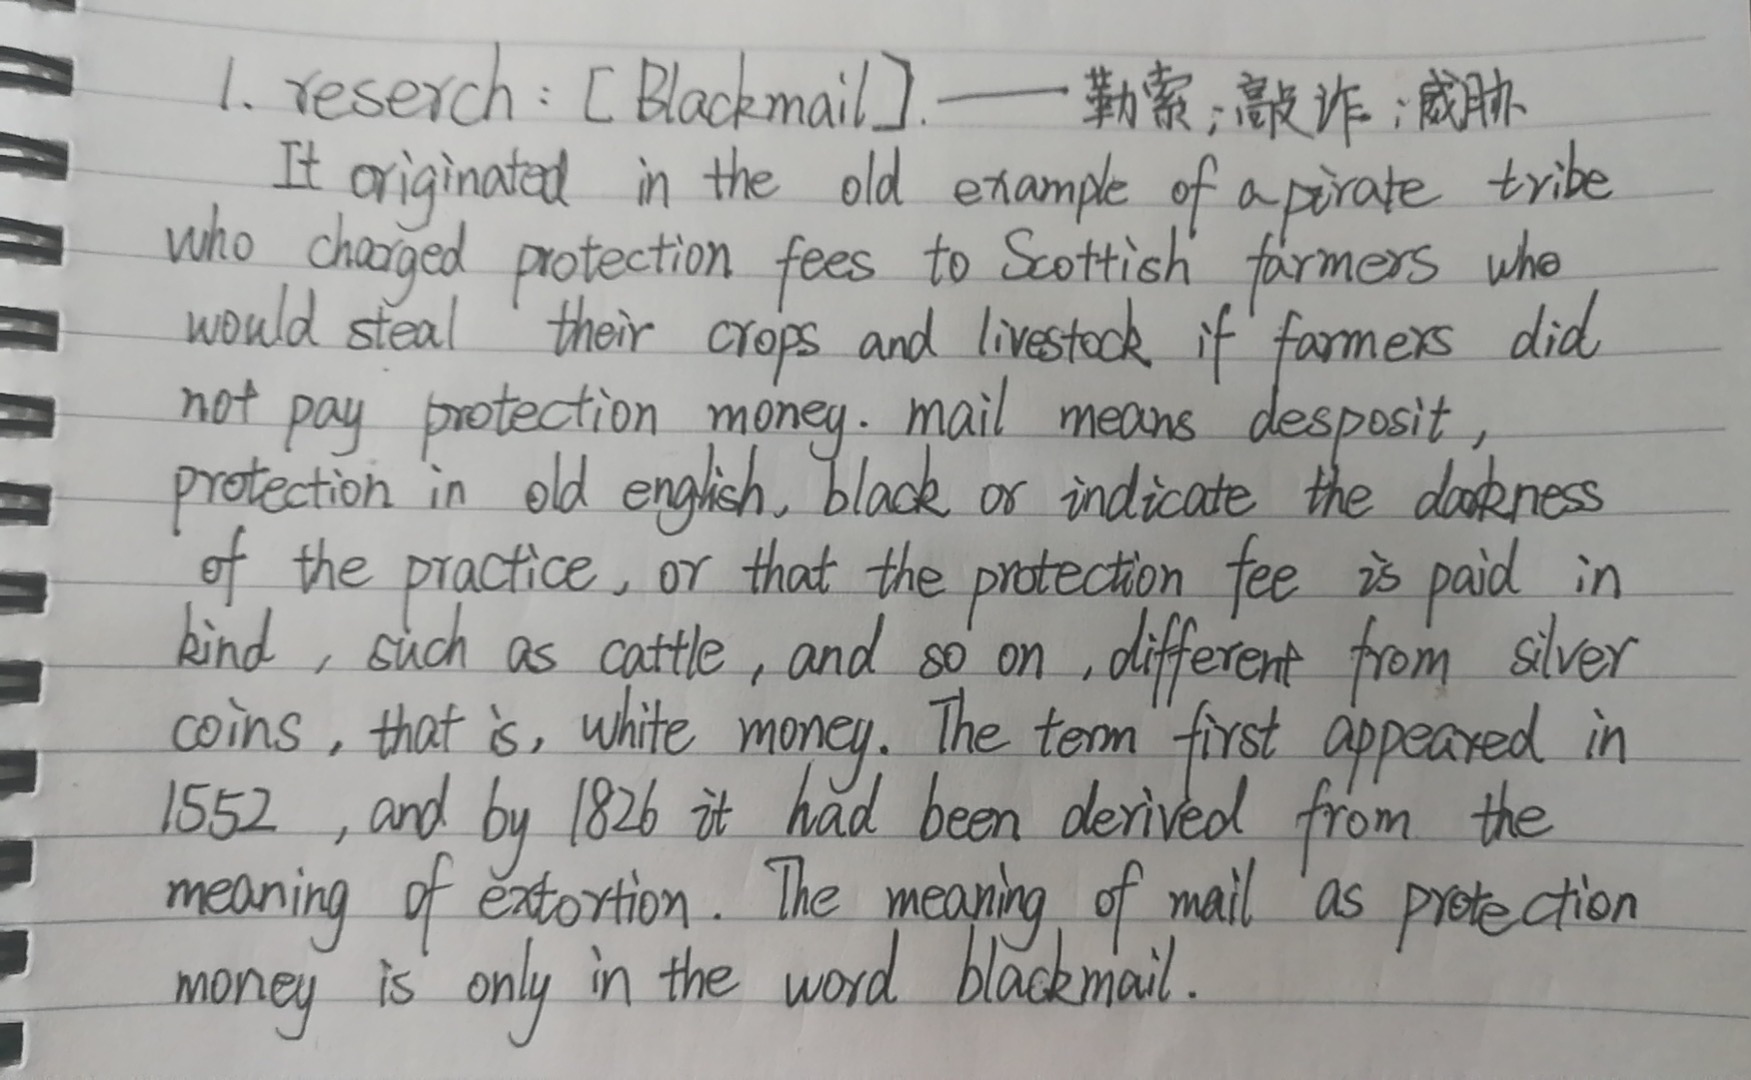 1. reserch : [Blackmail]. —— 勒索；敲诈；威胁
It originated in the old example of a pirate tribe
who charged protection fees to Scottish farmers who
would steal their crops and livestock if farmers did
not pay protection money. mail means desposit,
protection in old english, black or indicate the darkness
of the practice, or that the protection fee is paid in
kind, such as cattle, and so on, different from silver
coins, that is, white money. The term first appeared in
1552, and by 1826 it had been derived from the
meaning of extortion. The meaning of mail as protection
money is only in the word blackmail.